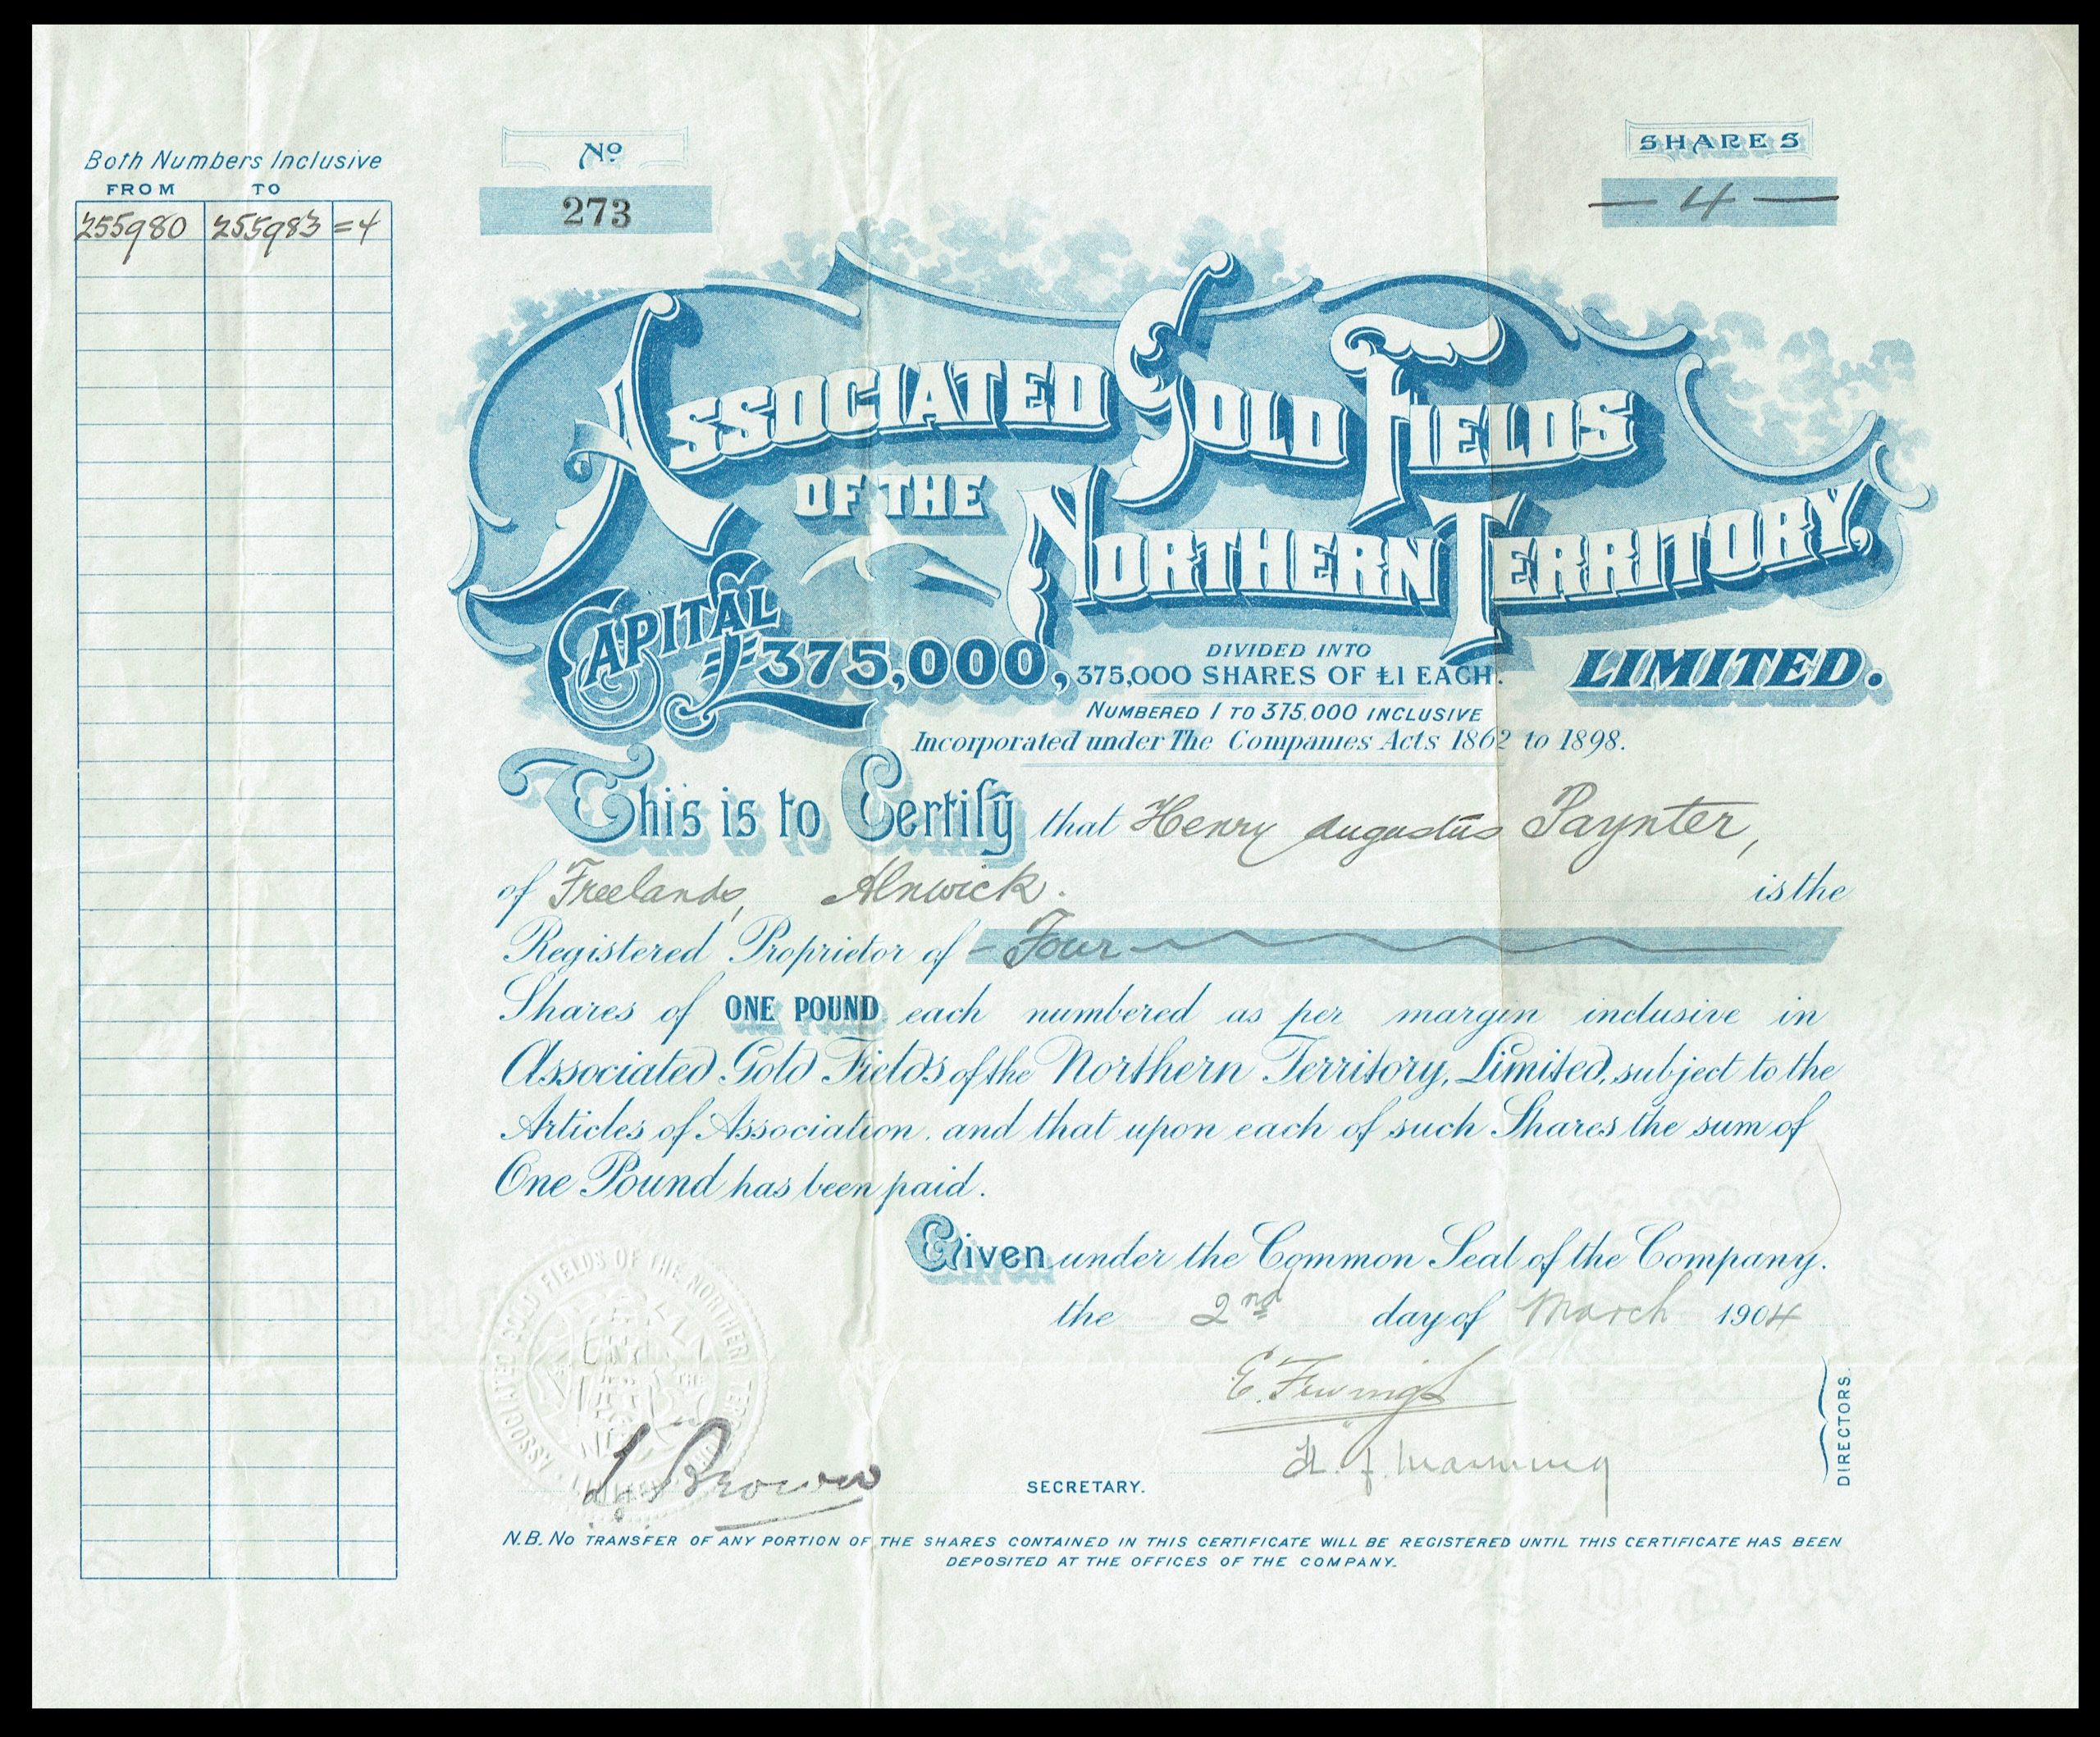 Both Numbers Inclusive
FROM TO
255980 255983 = 4
No
273
SHARES
— 4 —
ASSOCIATED GOLD FIELDS
OF THE
NORTHERN TERRITORY,
LIMITED.
CAPITAL
£375,000,
DIVIDED INTO
375,000 SHARES OF £1 EACH.
NUMBERED 1 TO 375,000 INCLUSIVE
Incorporated under The Companies Acts 1862 to 1898.
This is to Certify that Henry Augustus Paynter,
of Freelands, Alnwick. is the
Registered Proprietor of - Four
Shares of ONE POUND each numbered as per margin inclusive in
Associated Gold Fields of the Northern Territory, Limited, subject to the
Articles of Association, and that upon each of such Shares the sum of
One Pound has been paid.
Given under the Common Seal of the Company.
the 2nd day of March 1904
E.
H. J. Manning
DIRECTORS.
ASSOCIATED GOLD FIELDS OF THE NORTHERN
Brown
SECRETARY.
N.B. NO TRANSFER OF ANY PORTION OF THE SHARES CONTAINED IN THIS CERTIFICATE WILL BE REGISTERED UNTIL THIS CERTIFICATE HAS BEEN
DEPOSITED AT THE OFFICES OF THE COMPANY.